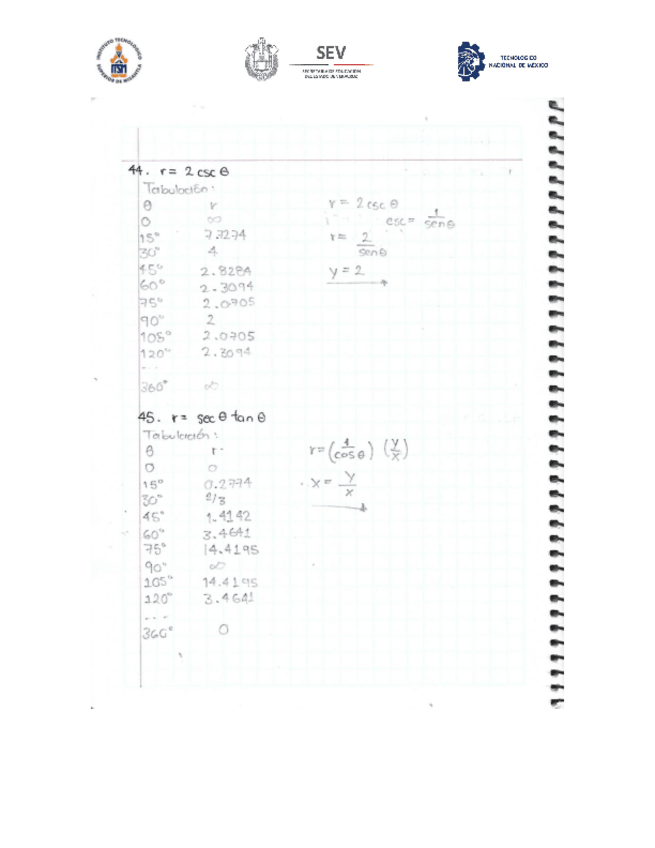 SEV
SECRETARÍA DE EDUCACIÓN
DEL ESTADO DE VERACRUZ
TECNOLÓGICO
NACIONAL DE MÉXICO
44. r = 2 csc θ
Tabulación:
θ r
0 ∞
15° 7.7274
30° 4
45° 2.8284
60° 2.3094
75° 2.0705
90° 2
105° 2.0705
120° 2.3094
...
360° ∞
r = 2 csc θ
csc = 1/senθ
r = 2/senθ
y = 2
45. r = sec θ tan θ
Tabulación:
θ r
0 0
15° 0.2774
30° 2/3
45° 1.4142
60° 3.4641
75° 14.4195
90° ∞
105° 14.4195
120° 3.4641
...
360° 0
r = (1/cos θ) (y/x)
x = y/x